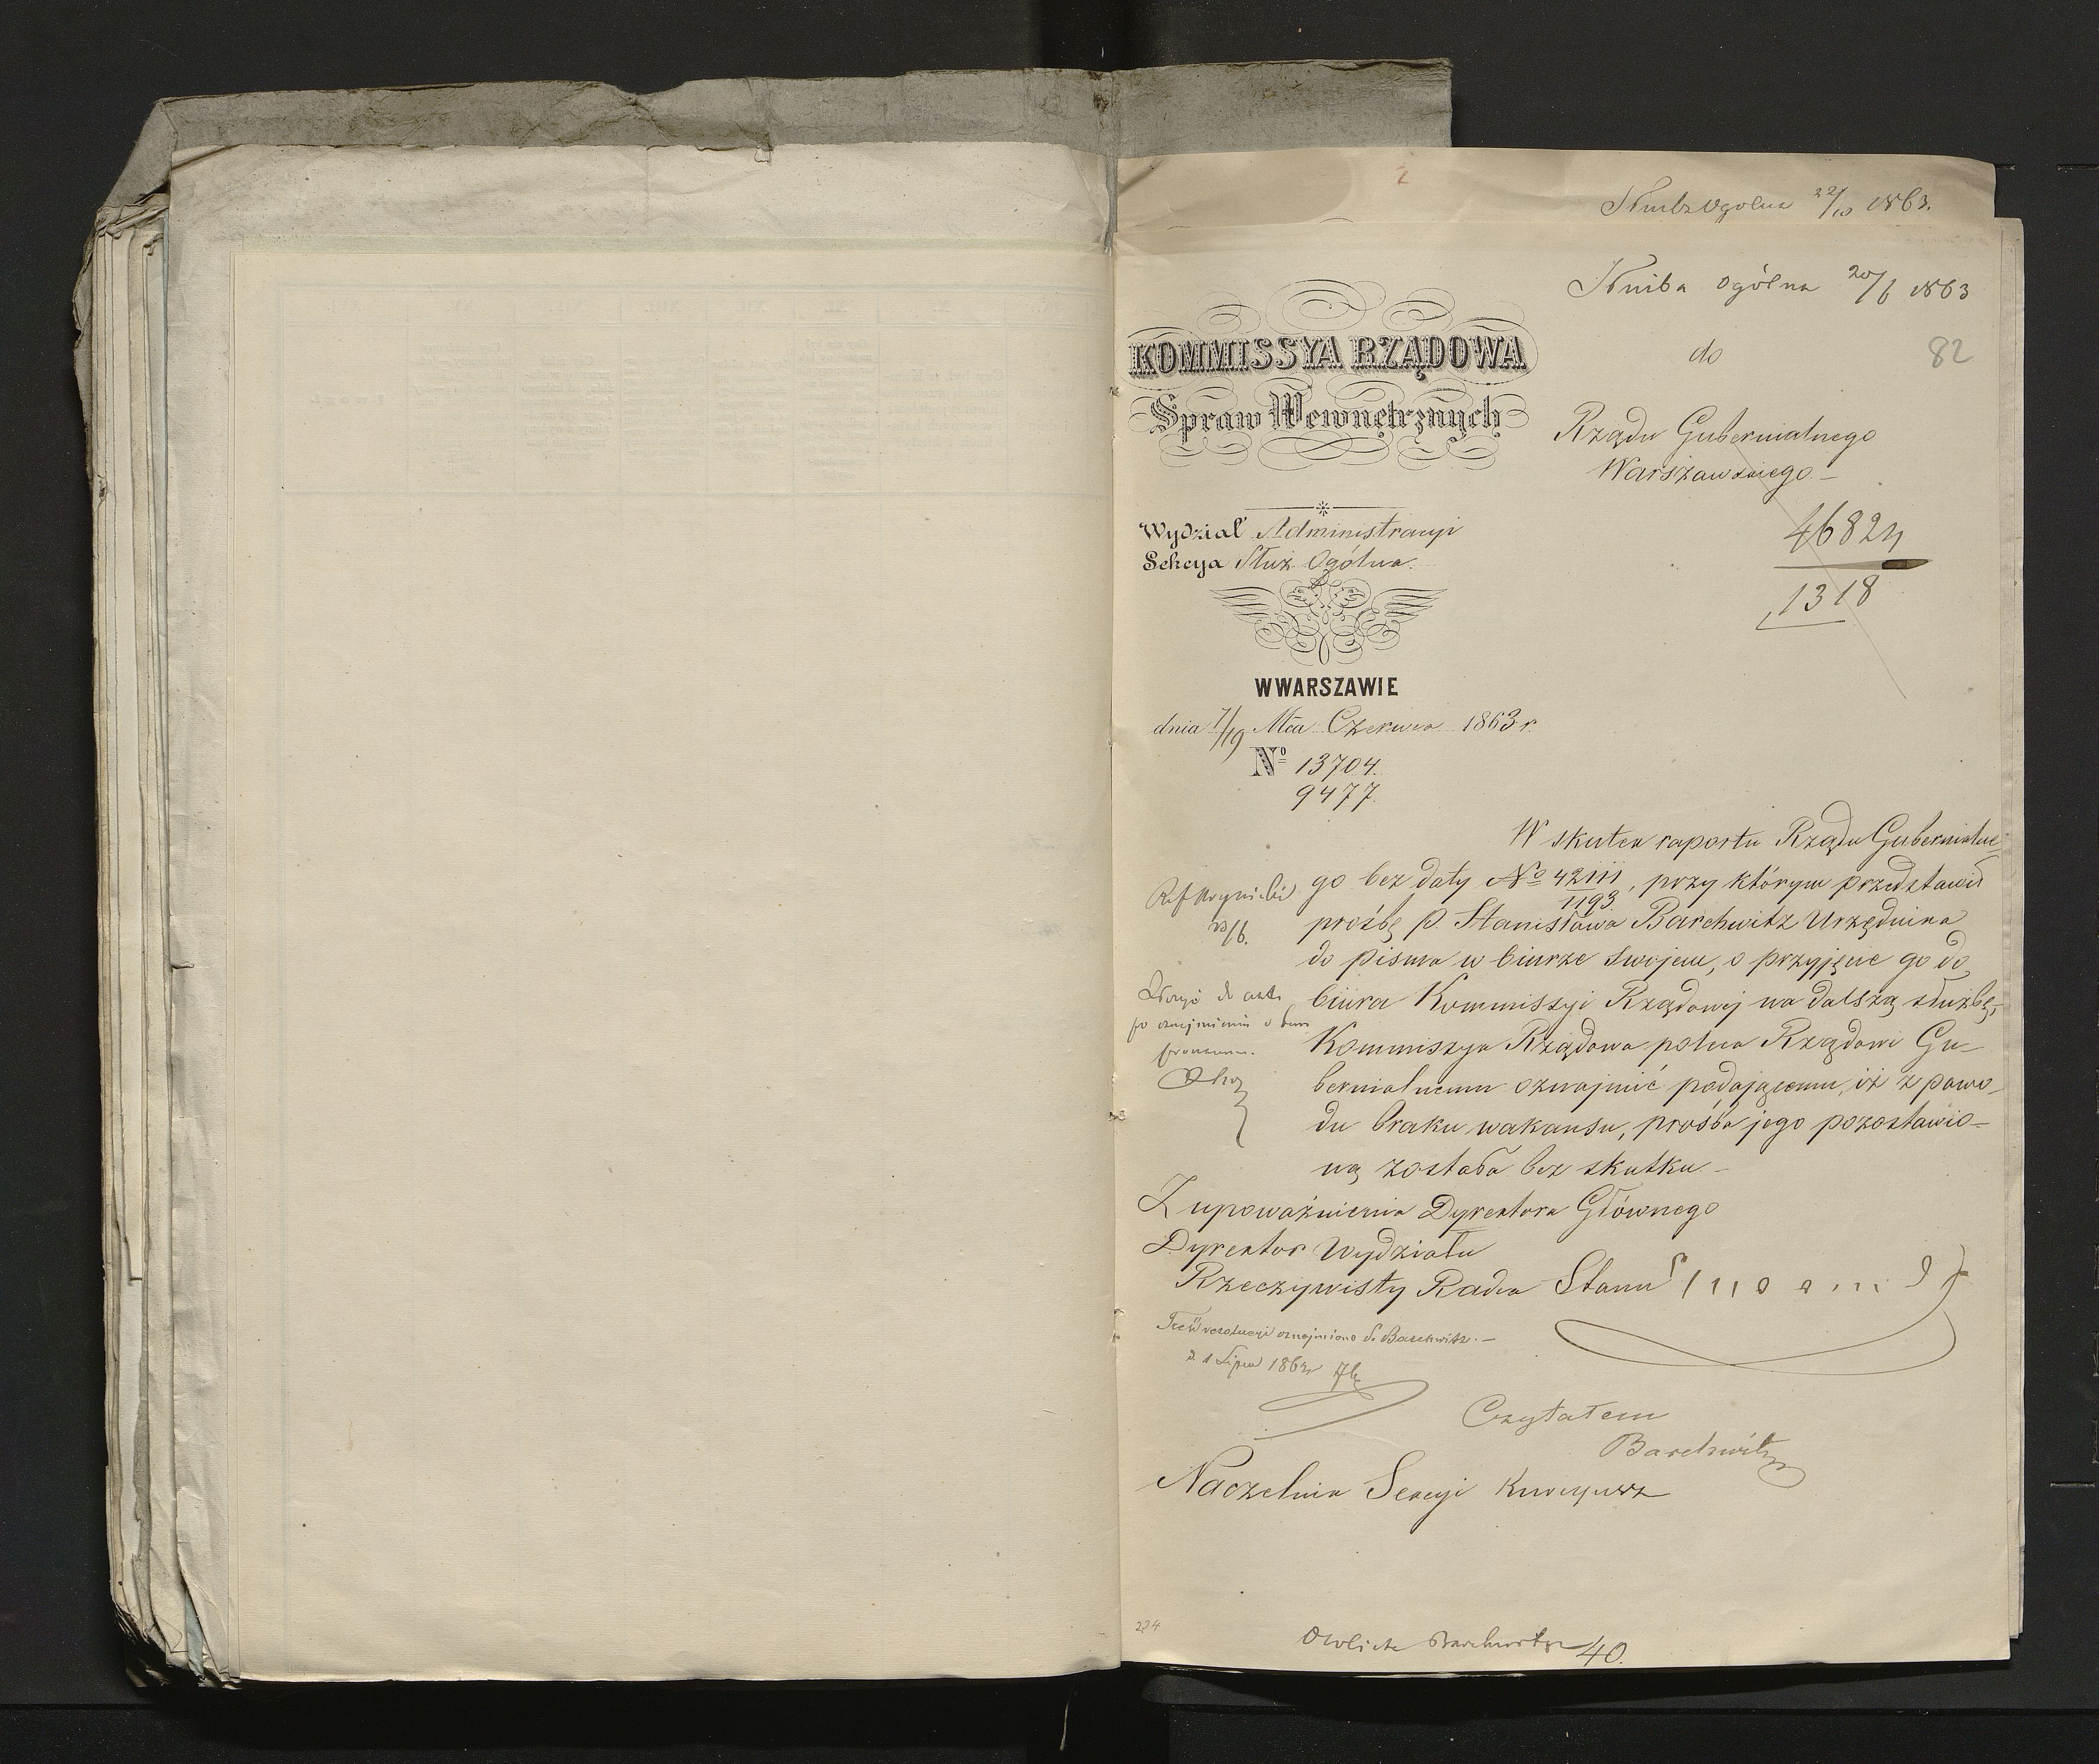 2
Służba Ogólna 22/10 1863.
Służba Ogólna 20/6 1863
do
82
KOMMISSYA RZĄDOWA
Spraw Wewnętrznych
Rządu Gubernialnego
Warszawskiego.
46824
1318
Wydział Administracyi
Sekcya Służ. Ogólna.
W WARSZAWIE
dnia 7/19 Mca Czerwca 1863 r.
No 13704.
9477.
W skutek raportu Rządu Gubernialne-
go bez daty No 42111/1193, przy którym przedstawił
prośbę p. Stanisława Barchwitz Urzędnika
do pisma w biurze swojem, o przyjęcie go do
biura Kommissyi Rządowej na dalszą służbę,
Kommissya Rządowa poleca Rządowi Gu-
bernialnemu oznajmić podającemu, iż z powo-
du braku wakansu, prośba jego pozostawio-
ną została bez skutku.
23/6.
Złożyć do akt
po oznajmieniu o tem
Z upoważnienia Dyrektora Głównego
Dyrektor Wydziału
Rzeczywisty Radca Stanu
Treść rezolucyi oznajmiono P. Barchwitz.
d. 1 Lipca 1863 r.
Czytałem
Barchwitz
Naczelnik Sekcyi
224
Barchwitz 40.